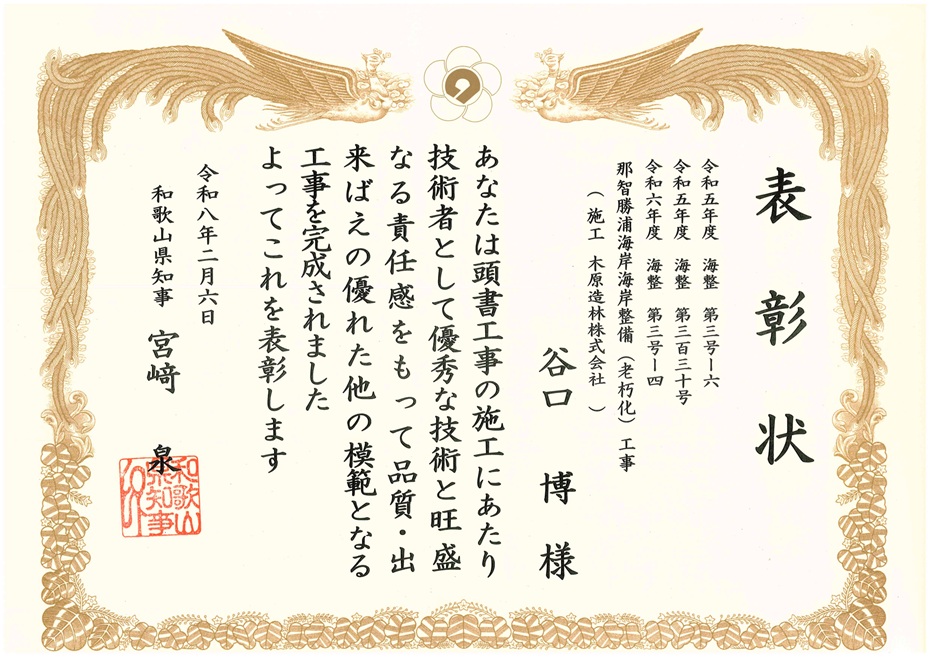 表彰状
令和五年度 海整 第三号ー六
令和五年度 海整 第三百三十号
令和六年度 海整 第三号ー四
那智勝浦海岸海岸整備（老朽化）工事
（施工 木原造林株式会社）
谷口 博 様
あなたは頭書工事の施工にあたり
技術者として優秀な技術と旺盛
なる責任感をもって品質・出
来ばえの優れた他の模範となる
工事を完成されました
よってこれを表彰します
令和八年二月六日
和歌山県知事 宮﨑 泉
和歌山
県知事
之印